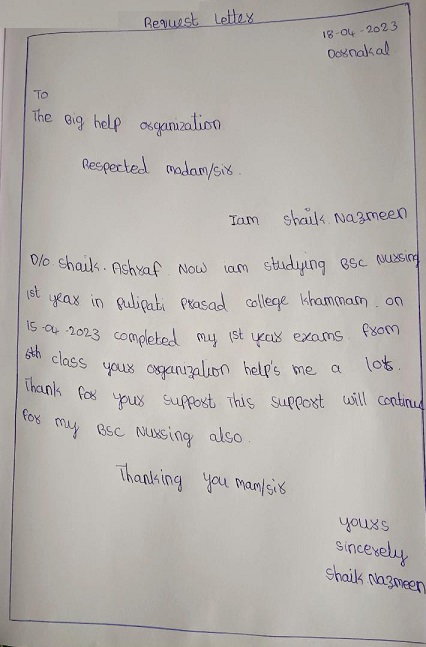 Request Letter
18-04-2023
Dornakal
To
The Big help organization
Respected madam/sir.
Iam Shaik. Nazmeen
D/o Shaik. Ashraf. Now iam studying BSC Nursing
1st year in Pulipati Prasad college Khammam. on
15-04-2023 completed my 1st year exams. from
6th class your organization help's me a lot.
Thank for your support This support will continue
for my BSC Nursing also.
Thanking you mam/sir
yours
sincerely
Shaik Nazmeen